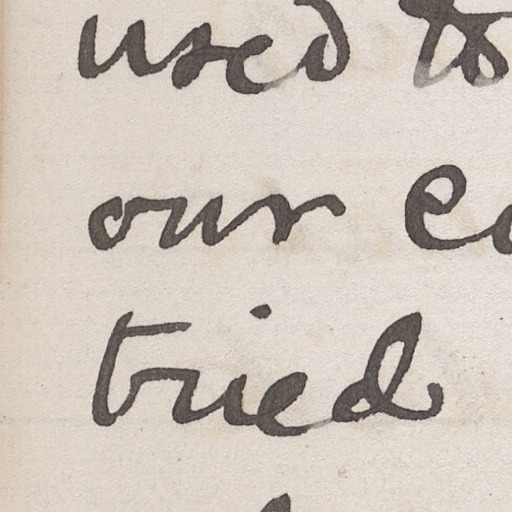 used to
our
tried